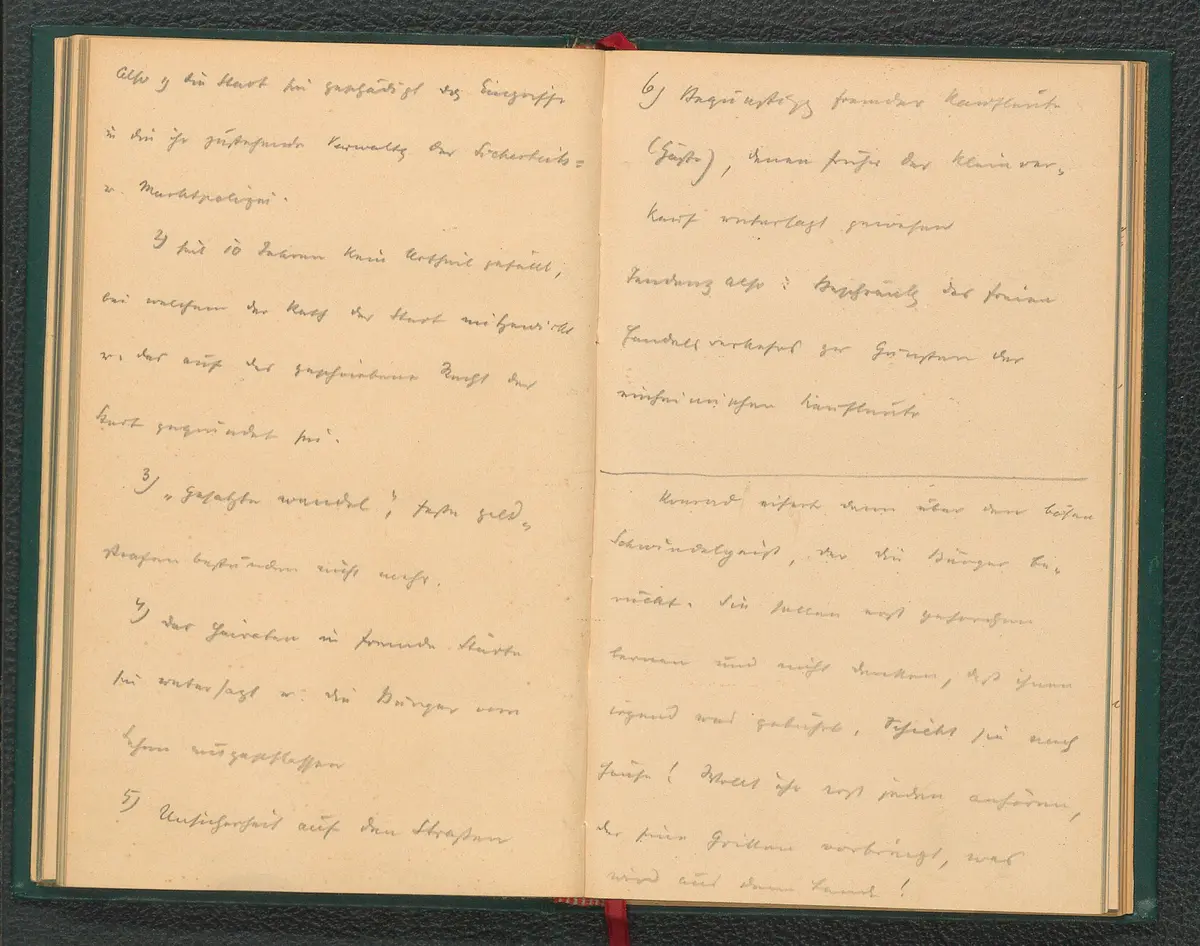 Also 1) die Stadt sei geschädigt dch Eingriffe
in die ihr zustehende Verwaltg der Sicherheits=
u. Marktpolizei.
2) seit 10 Jahren kein Urtheil gefällt,
bei welchem der Rath der Stadt mitgewirkt
u. das auf das geschriebene Recht der
Stadt gegründet sei.
3) „gesatzte wandel", feste Geld„
strafen bestünden nicht mehr.
4) das Heiraten in fremde Städte
sei untersagt u. die Bürger vom
Lehen ausgeschlossen
5) Unsicherheit auf den Straßen
6) Begünstigg fremder Kaufleute
(Gäste), denen früher der Kleinver„
kauf untersagt gewesen
Tendenz also: Beschränkg des freien
Handelsverkehrs zu Gunsten der
einheimischen Kaufleute
Konrad eifert dann über den bösen
Schwindelgeist, der die Bürger be„
rückt. Sie sollen erst gehorchen
lernen und nicht denken, daß ihnen
irgend was gebührt. Schickt sie nach
Hause! Wollt ihr erst jeden anhören,
der seine Grillen vorbringt, was
wird aus dem Land!